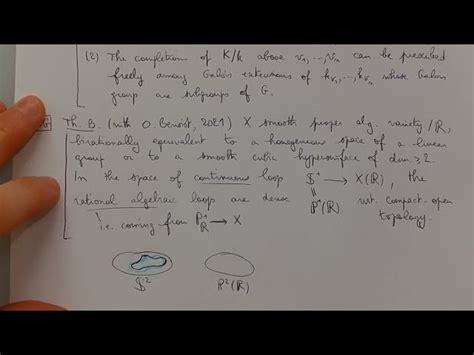 (2) The completions of K/k above v₁,...,vₙ can be prescribed
freely among Galois extensions of k_v₁,...,k_vₙ whose Galois
group are subgroups of G.
Th. B. (with O. Benoist, 2021) X smooth proper alg. variety /ℝ,
birationally equivalent to a homogeneous space of a linear
group or to a smooth cubic hypersurface of dim ≥ 2.
In the space of continuous loop 𝕊¹ → X(ℝ), the
rational algebraic loop are dense P¹(ℝ) wrt. compact-open
i.e. coming from P¹_ℝ → X topology.
𝕊² P²(ℝ)